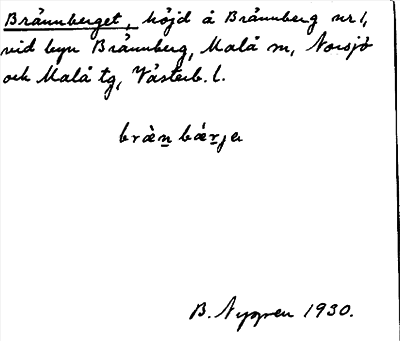 Brännberget, höjd å Brännberg nr 1,
vid byn Brännberg, Malå sn, Norsjö
och Malå tg, Västerb. l.
bräṉ bärjɐ
B. Nygren 1930.